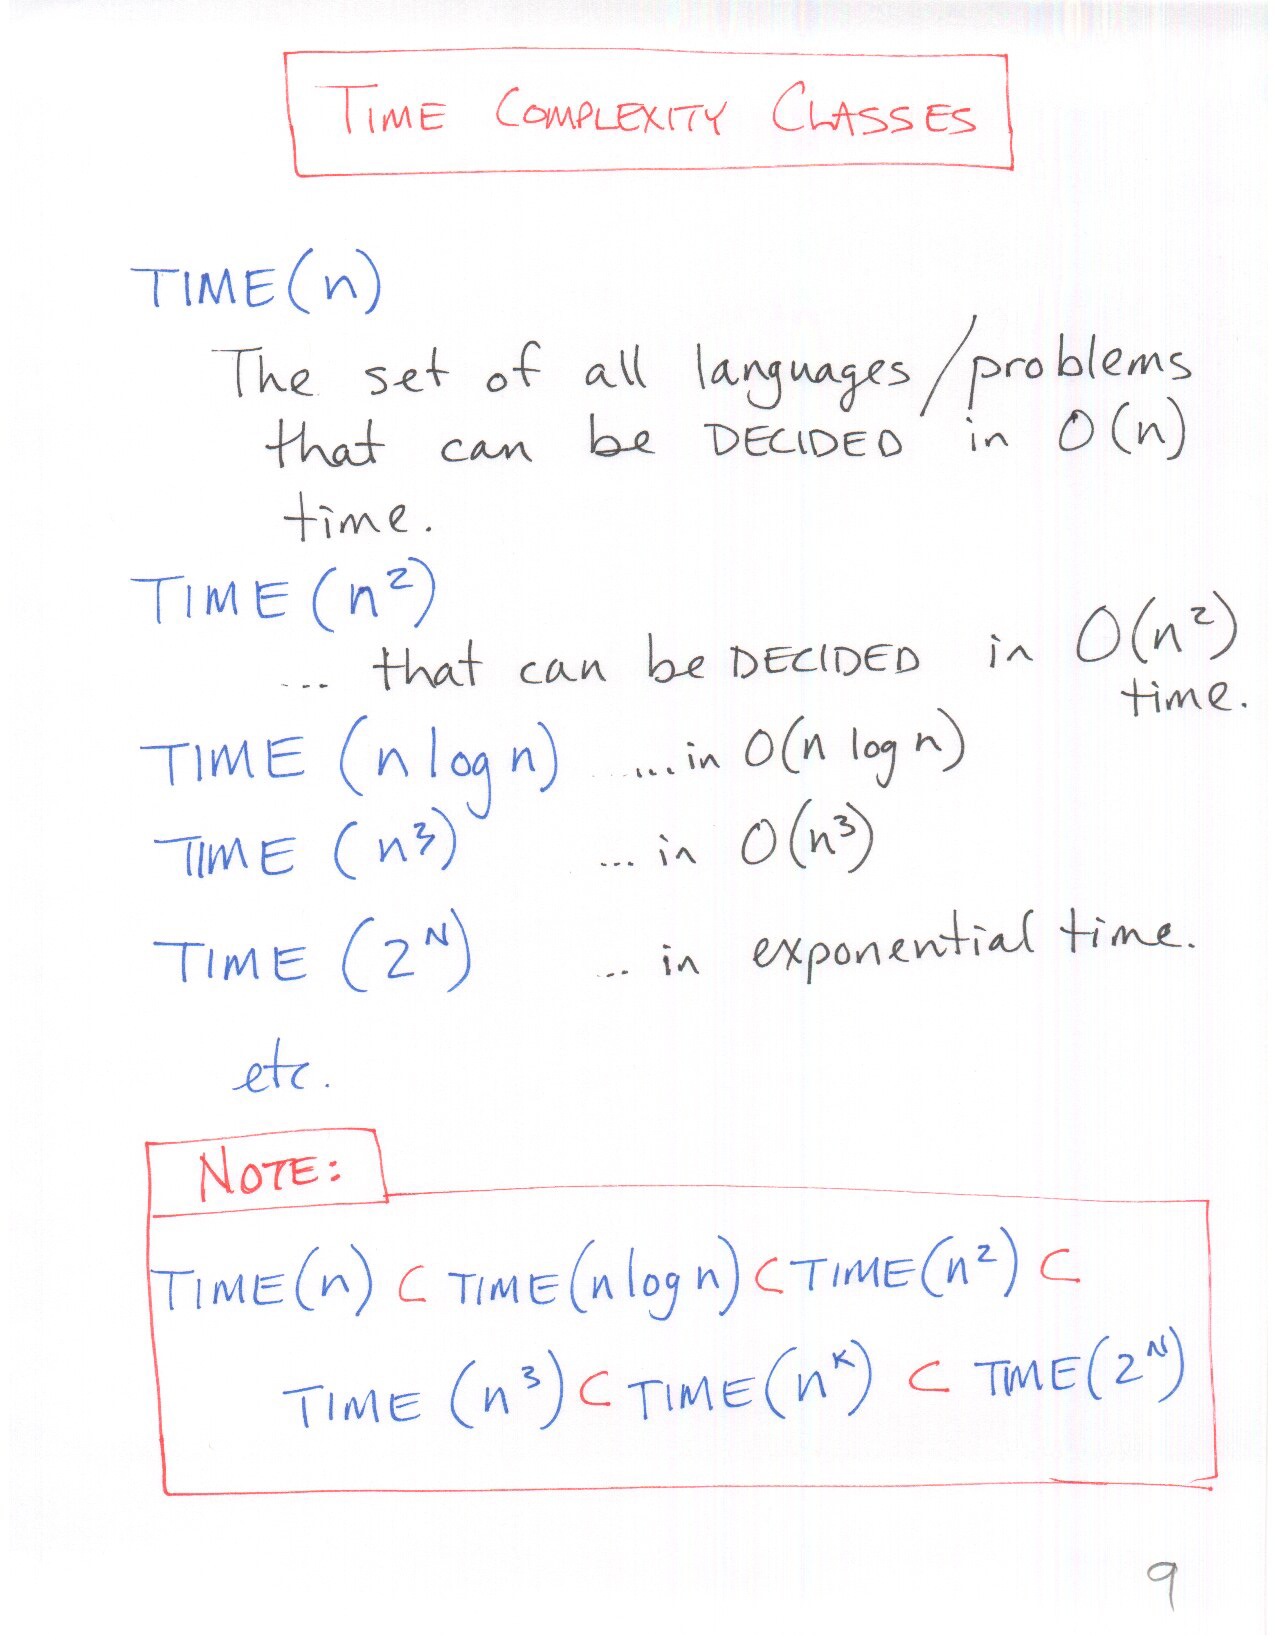 TIME COMPLEXITY CLASSES
TIME(n)
The set of all languages/problems
that can be DECIDED in O(n)
time.
TIME (n²)
... that can be DECIDED in O(n²)
time.
TIME (n log n) ....in O(n log n)
TIME (n³) ... in O(n³)
TIME (2ᴺ) ... in exponential time.
etc.
NOTE:
TIME(n) ⊂ TIME(n log n) ⊂ TIME(n²) ⊂
TIME (n³) ⊂ TIME(nᴷ) ⊂ TIME(2ᴺ)
9